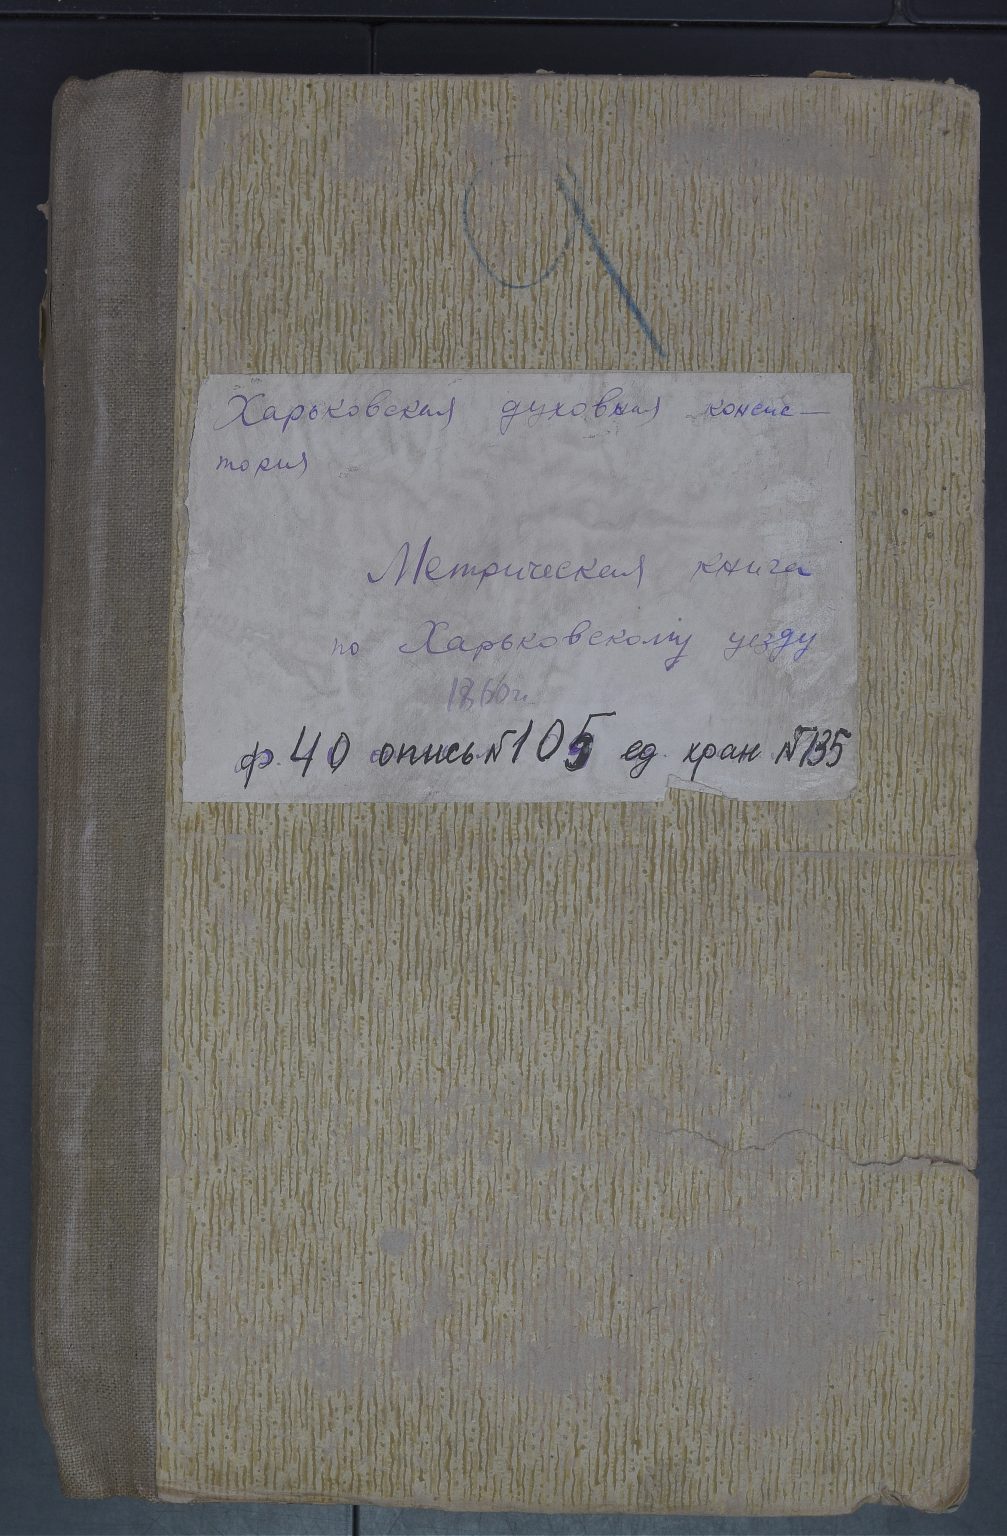 9
Харьковская духовная консис-
тория
Метрическая книга
по Харьковскому уезду
1860 г.
ф. 40 опись №105 ед. хран №135